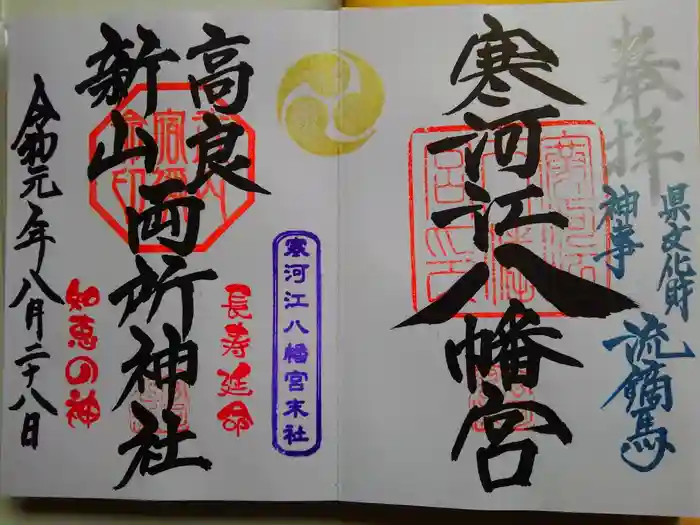 奉拝
県文化財
神事
流鏑馬
寒河江八幡宮
寒河江八幡宮末社
高良
新山両所神社
長寿延命
知恵の神
令和元年八月二十八日